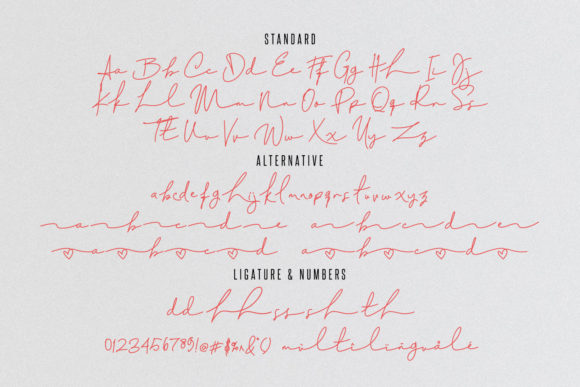 STANDARD
Aa Bb Cc Dd Ee Ff Gg Hh Ii Jj
Kk Ll Mm Nn Oo Pp Qq Rr Ss
Tt Uu Vv Ww Xx Yy Zz
ALTERNATIVE
abcdefghijklmnopqrstuvwxyz
a b c d e a b c d e
a b c d a b c d
LIGATURE & NUMBERS
dd hh ss sh th
0123456789!@#$%^&*() multilinguale